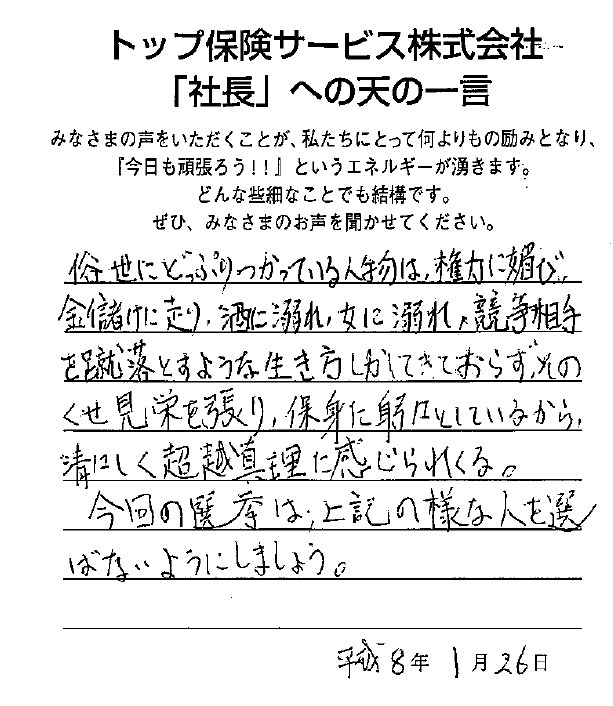 トップ保険サービス株式会社
「社長」への天の一言
みなさまの声をいただくことが、私たちにとって何よりもの励みとなり、
『今日も頑張ろう!!』というエネルギーが湧きます。
どんな些細なことでも結構です。
ぜひ、みなさまのお声を聞かせてください。
俗世にどっぷりつかっている人物は、権力に媚び、
金儲けに走り、酒に溺れ、女に溺れ、競争相手
を蹴落とすような生き方しかしてきておらず、その
くせ見栄を張り、保身に躍口としているから、
しく超越真理に感じられくる。
今回の選挙は、上記の様な人を選
ばないようにしましょう。
平成8年1月26日